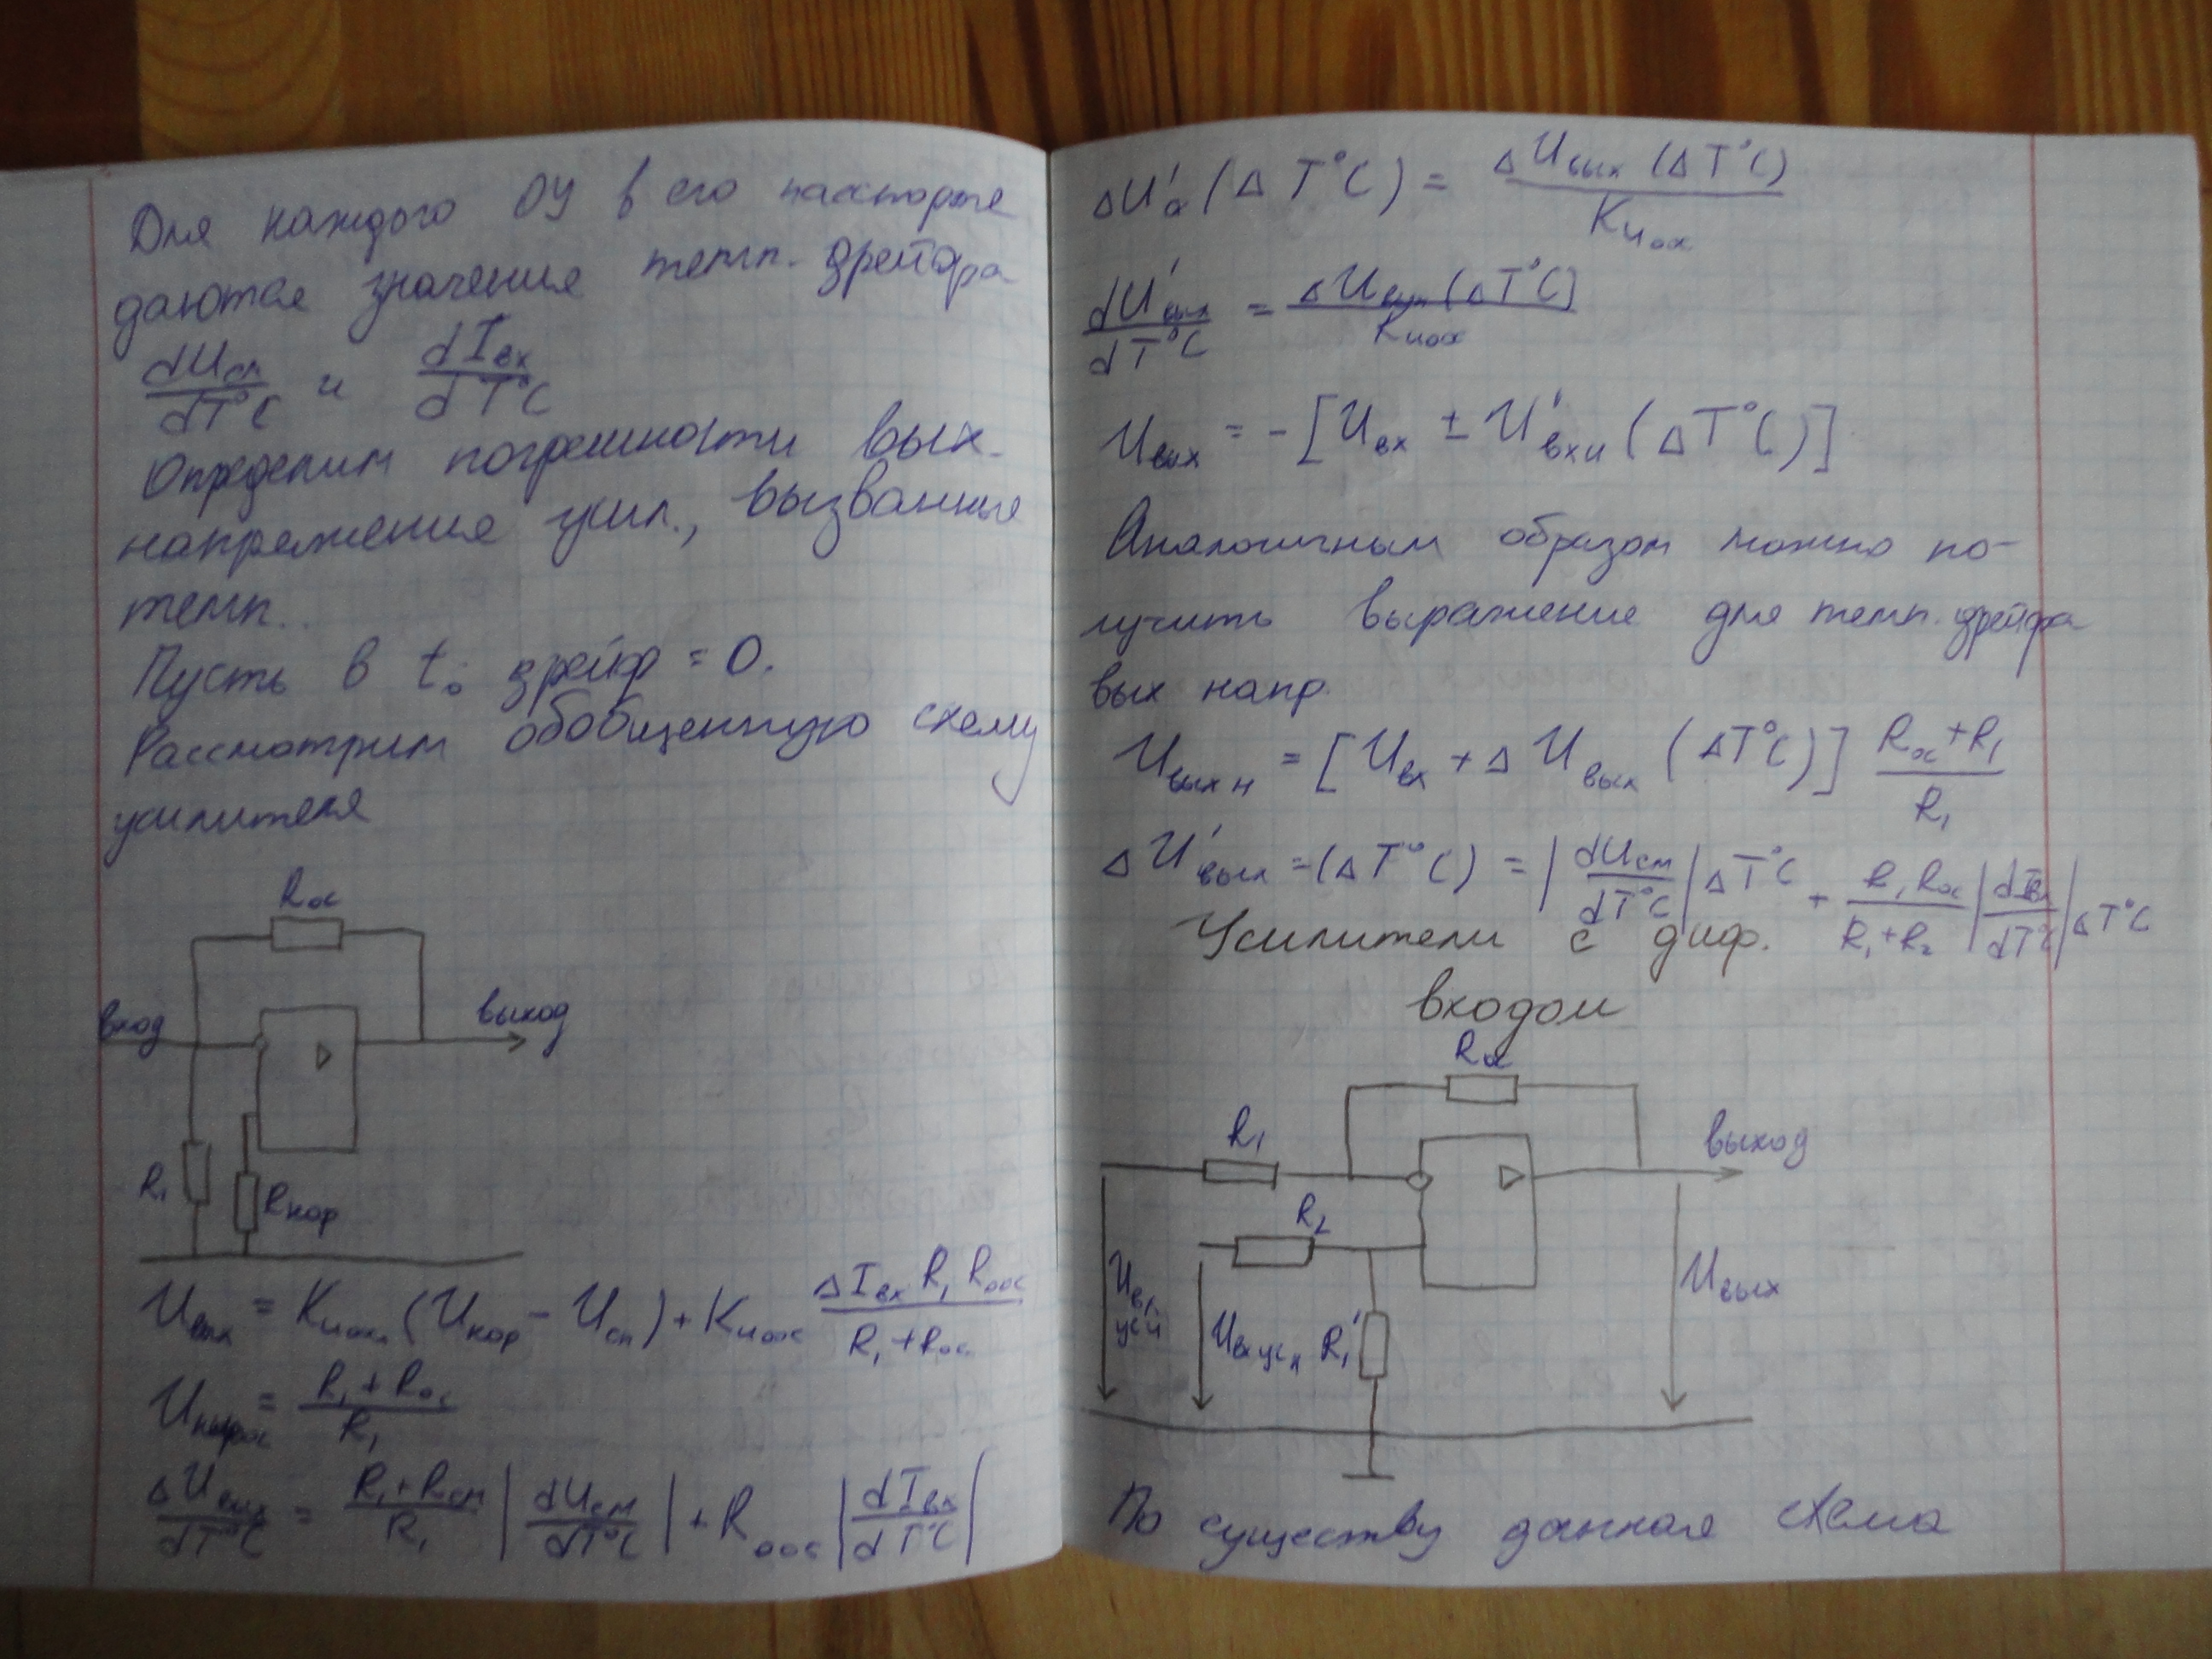 Для каждого ОУ в его паспорте
даются значения темп. дрейфа
dUсм/dT°C и dIвх/dT°C
Определим погрешности вых.
напряжения усил., вызванные
темп..
Пусть в t₀ дрейф = 0.
Рассмотрим обобщенную схему
усилителя
Rос
вход
выход
R₁
Rкор
Uвых = Kиоос (Uкор - Uсм) + Kиоос ΔIвх R₁ Rоос / R₁ + Rос
= R₁ + Rос / R₁
ΔUвых/dT°C = R₁ + Rсм / R₁ |dUсм/dT°C| + Rоос |dIвх/dT°C|
(ΔT°C) = ΔUвых (ΔT°C) / Kиос
dU'вых/dT°C = ΔUвых (ΔT°C) / Kиос
Uвых = - [Uвх ± U'вхи (ΔT°C)]
Аналогичным образом можно по-
лучить выражение для темп. дрейфа
вых напр.
Uвых н = [Uвх + ΔUвых (ΔT°C)] Rос + R₁ / R₁
ΔU'вых = (ΔT°C) = |dUсм/dT°C| ΔT°C + R₁ Rос / R₁ + R₂ |dIвх/dT°C| ΔT°C
Усилители с диф.
входом
Rос
R₁
выход
R₂
Uвх усн
R₁'
Uвых
По существу данная схема